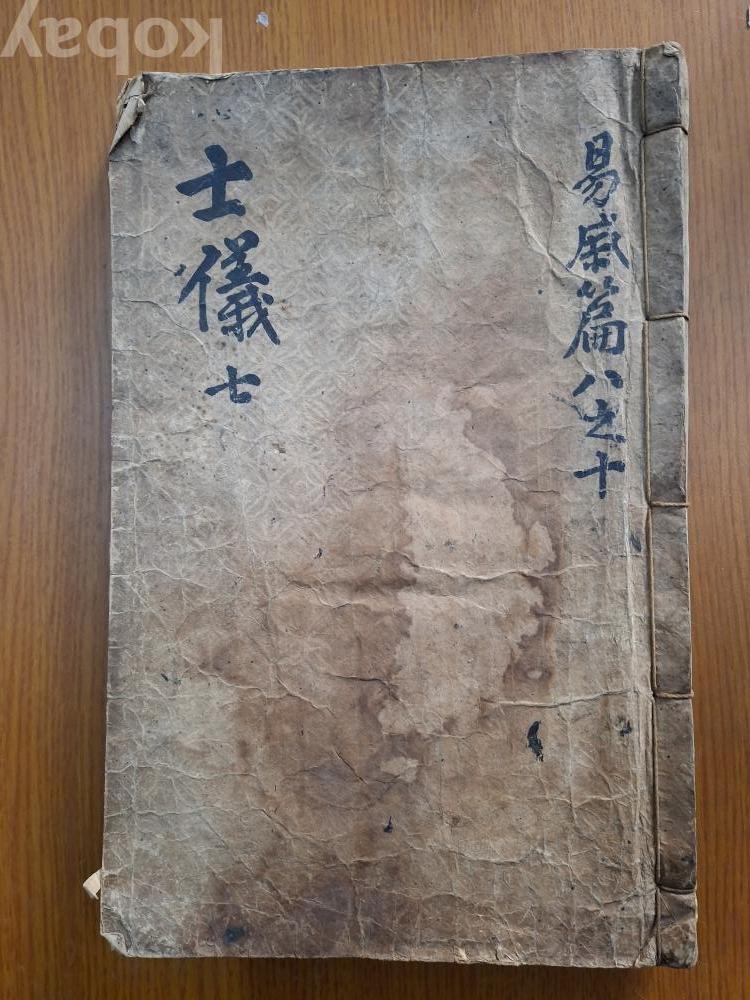 易戚篇八之十
士儀 七
kobay